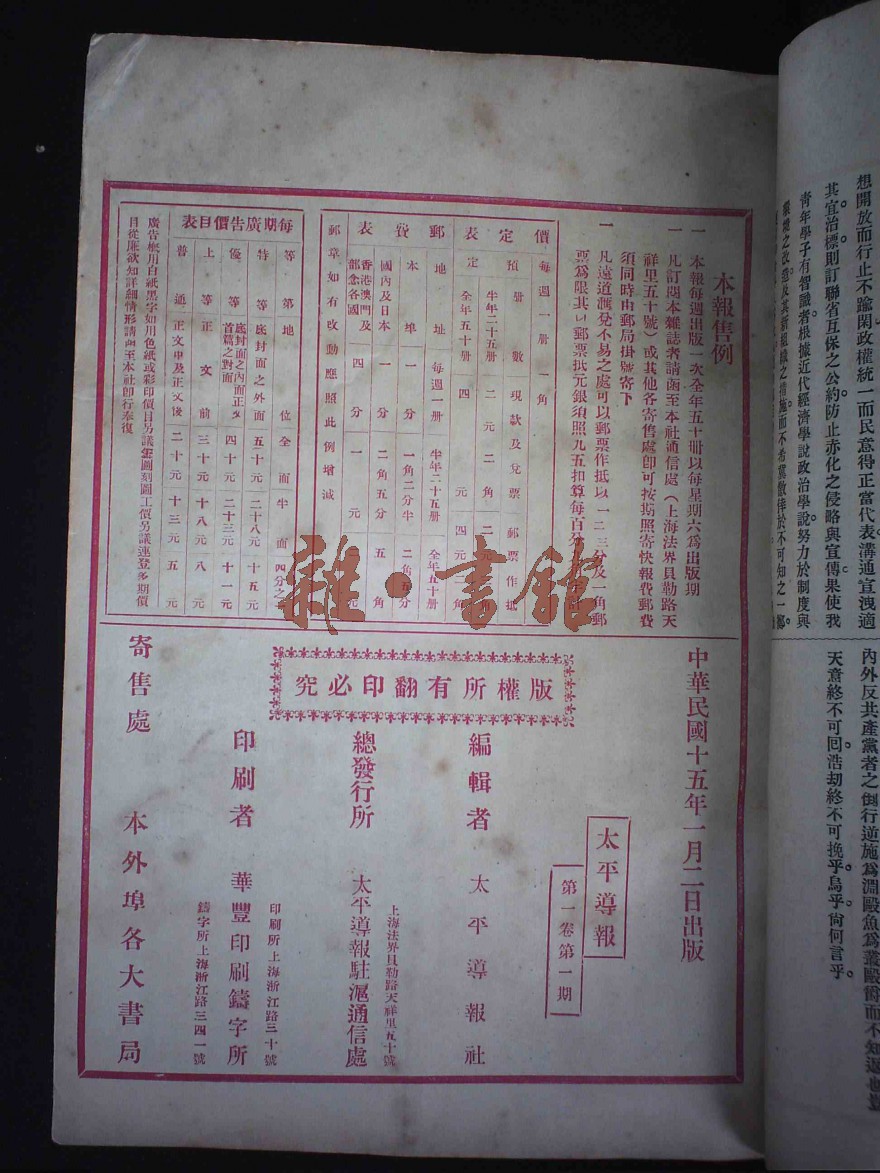 想開放而行止不踰閑政權統一而民意得正當代表溝通宣洩適
其宜治標則訂聯省互保之公約防止赤化之侵略與宣傳果使我
青年學子有智識者根據近代經濟學說政治學說努力於制度與
內外反共產黨者之倒行逆施爲淵毆魚爲叢毆爵而不知返
天意終不可回浩劫終不可挽乎烏乎尙何言乎
本報售例
一 本報每週出版一次全年五十册以每星期六爲出版期
一 凡訂閱本雜誌者請函至本社通信處(上海法界貝勒路天
祥里五十號)或其他各寄售處卽可按期照寄快報費郵費
須同時由郵局掛號寄下
一 凡遠道滙兌不易之處可以郵票作抵以一二三分及一角郵
票爲限其以郵票抵元銀須照九五扣算每百分
價定表
每週一册一角
預定
册數 現款及兌票 郵票作抵
半年二十五册 二元二角
全年五十册 四元 四元二角
郵費表
地址 每週一册 半年二十五册 全年五十册
本埠 一分 一角二分半 二角五分
國內及日本 一分 二角五分 五角
香港澳門及郵念各國 四分 一元
郵章如有改動應照此例增減
每期廣告價目表
等第 地位 全面 半面 四分之
特等 底封面之外面 五十元 二十八元 十五元
優等 底封面之內面正文首篇之對面 四十元 二十三元 十一元
上等 正文前 三十元 十八元 八元
普通 正文中及正文後 二十元 十三元 五元
廣告概用白紙黑字如用色紙或彩印價目另議鋅圖刻圖工價另議連登多期價
目從廉欲知詳細情形請函至本社卽行奉復
雜·書館
中華民國十五年一月二日出版
太平導報
第一卷第一期
版權所有翻印必究
編輯者 太平導報社
總發行所 太平導報駐滬通信處
上海法界貝勒路天祥里五十號
印刷者 華豐印刷鑄字所
印刷所上海浙江路三十號
鑄字所上海浙江路三四一號
寄售處 本外埠各大書局